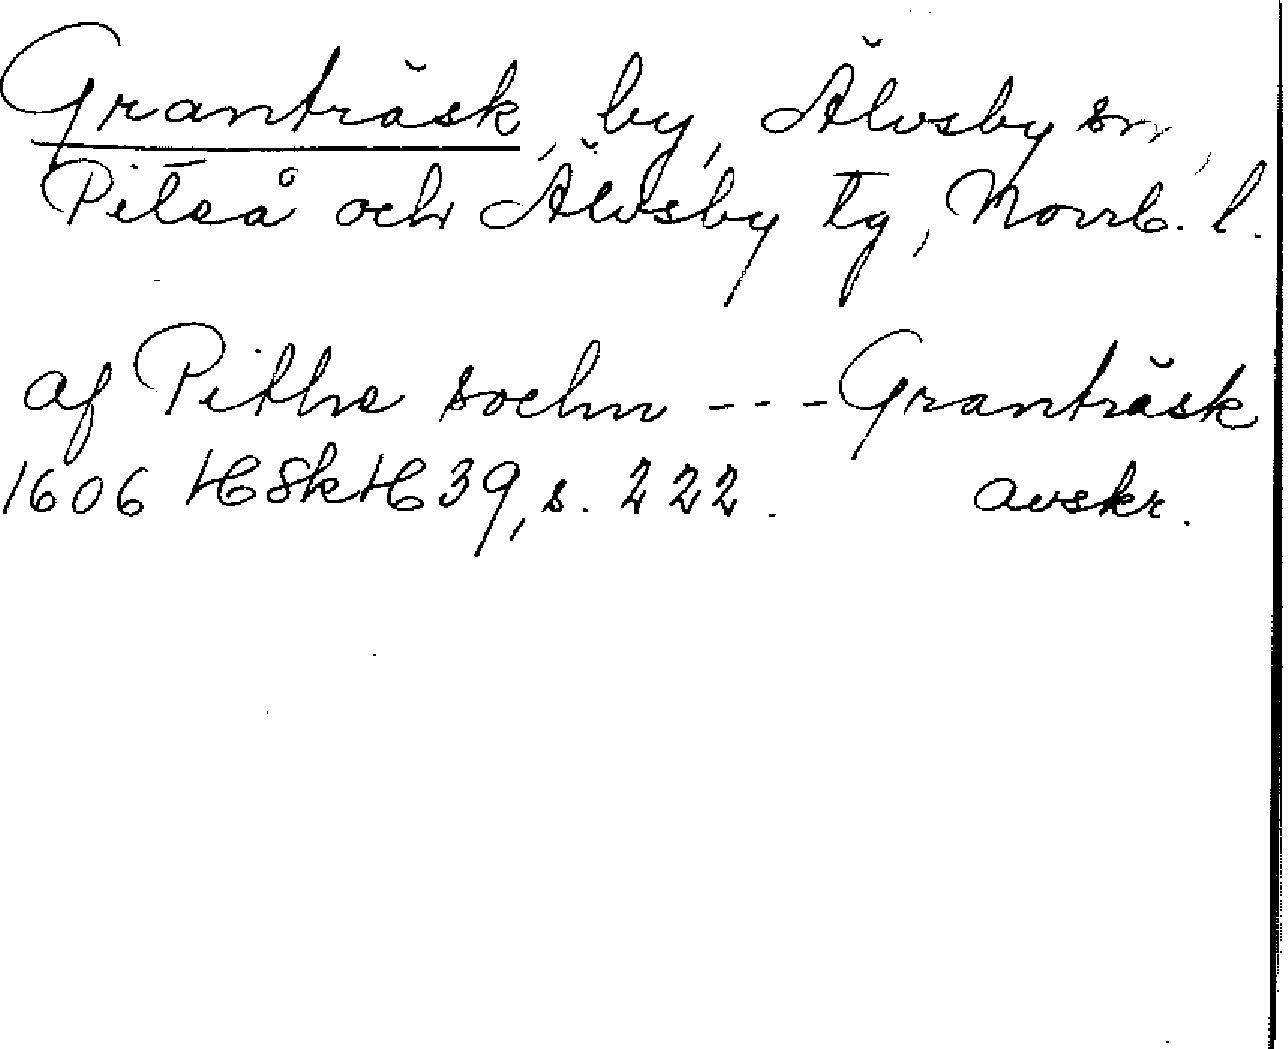 Granträsk, by, Älvsby sn,
Piteå och Älvsby tg, Norrb. l.
af Pithe sochn --- Granträsk
1606 HSkH 39, s. 222. avskr.